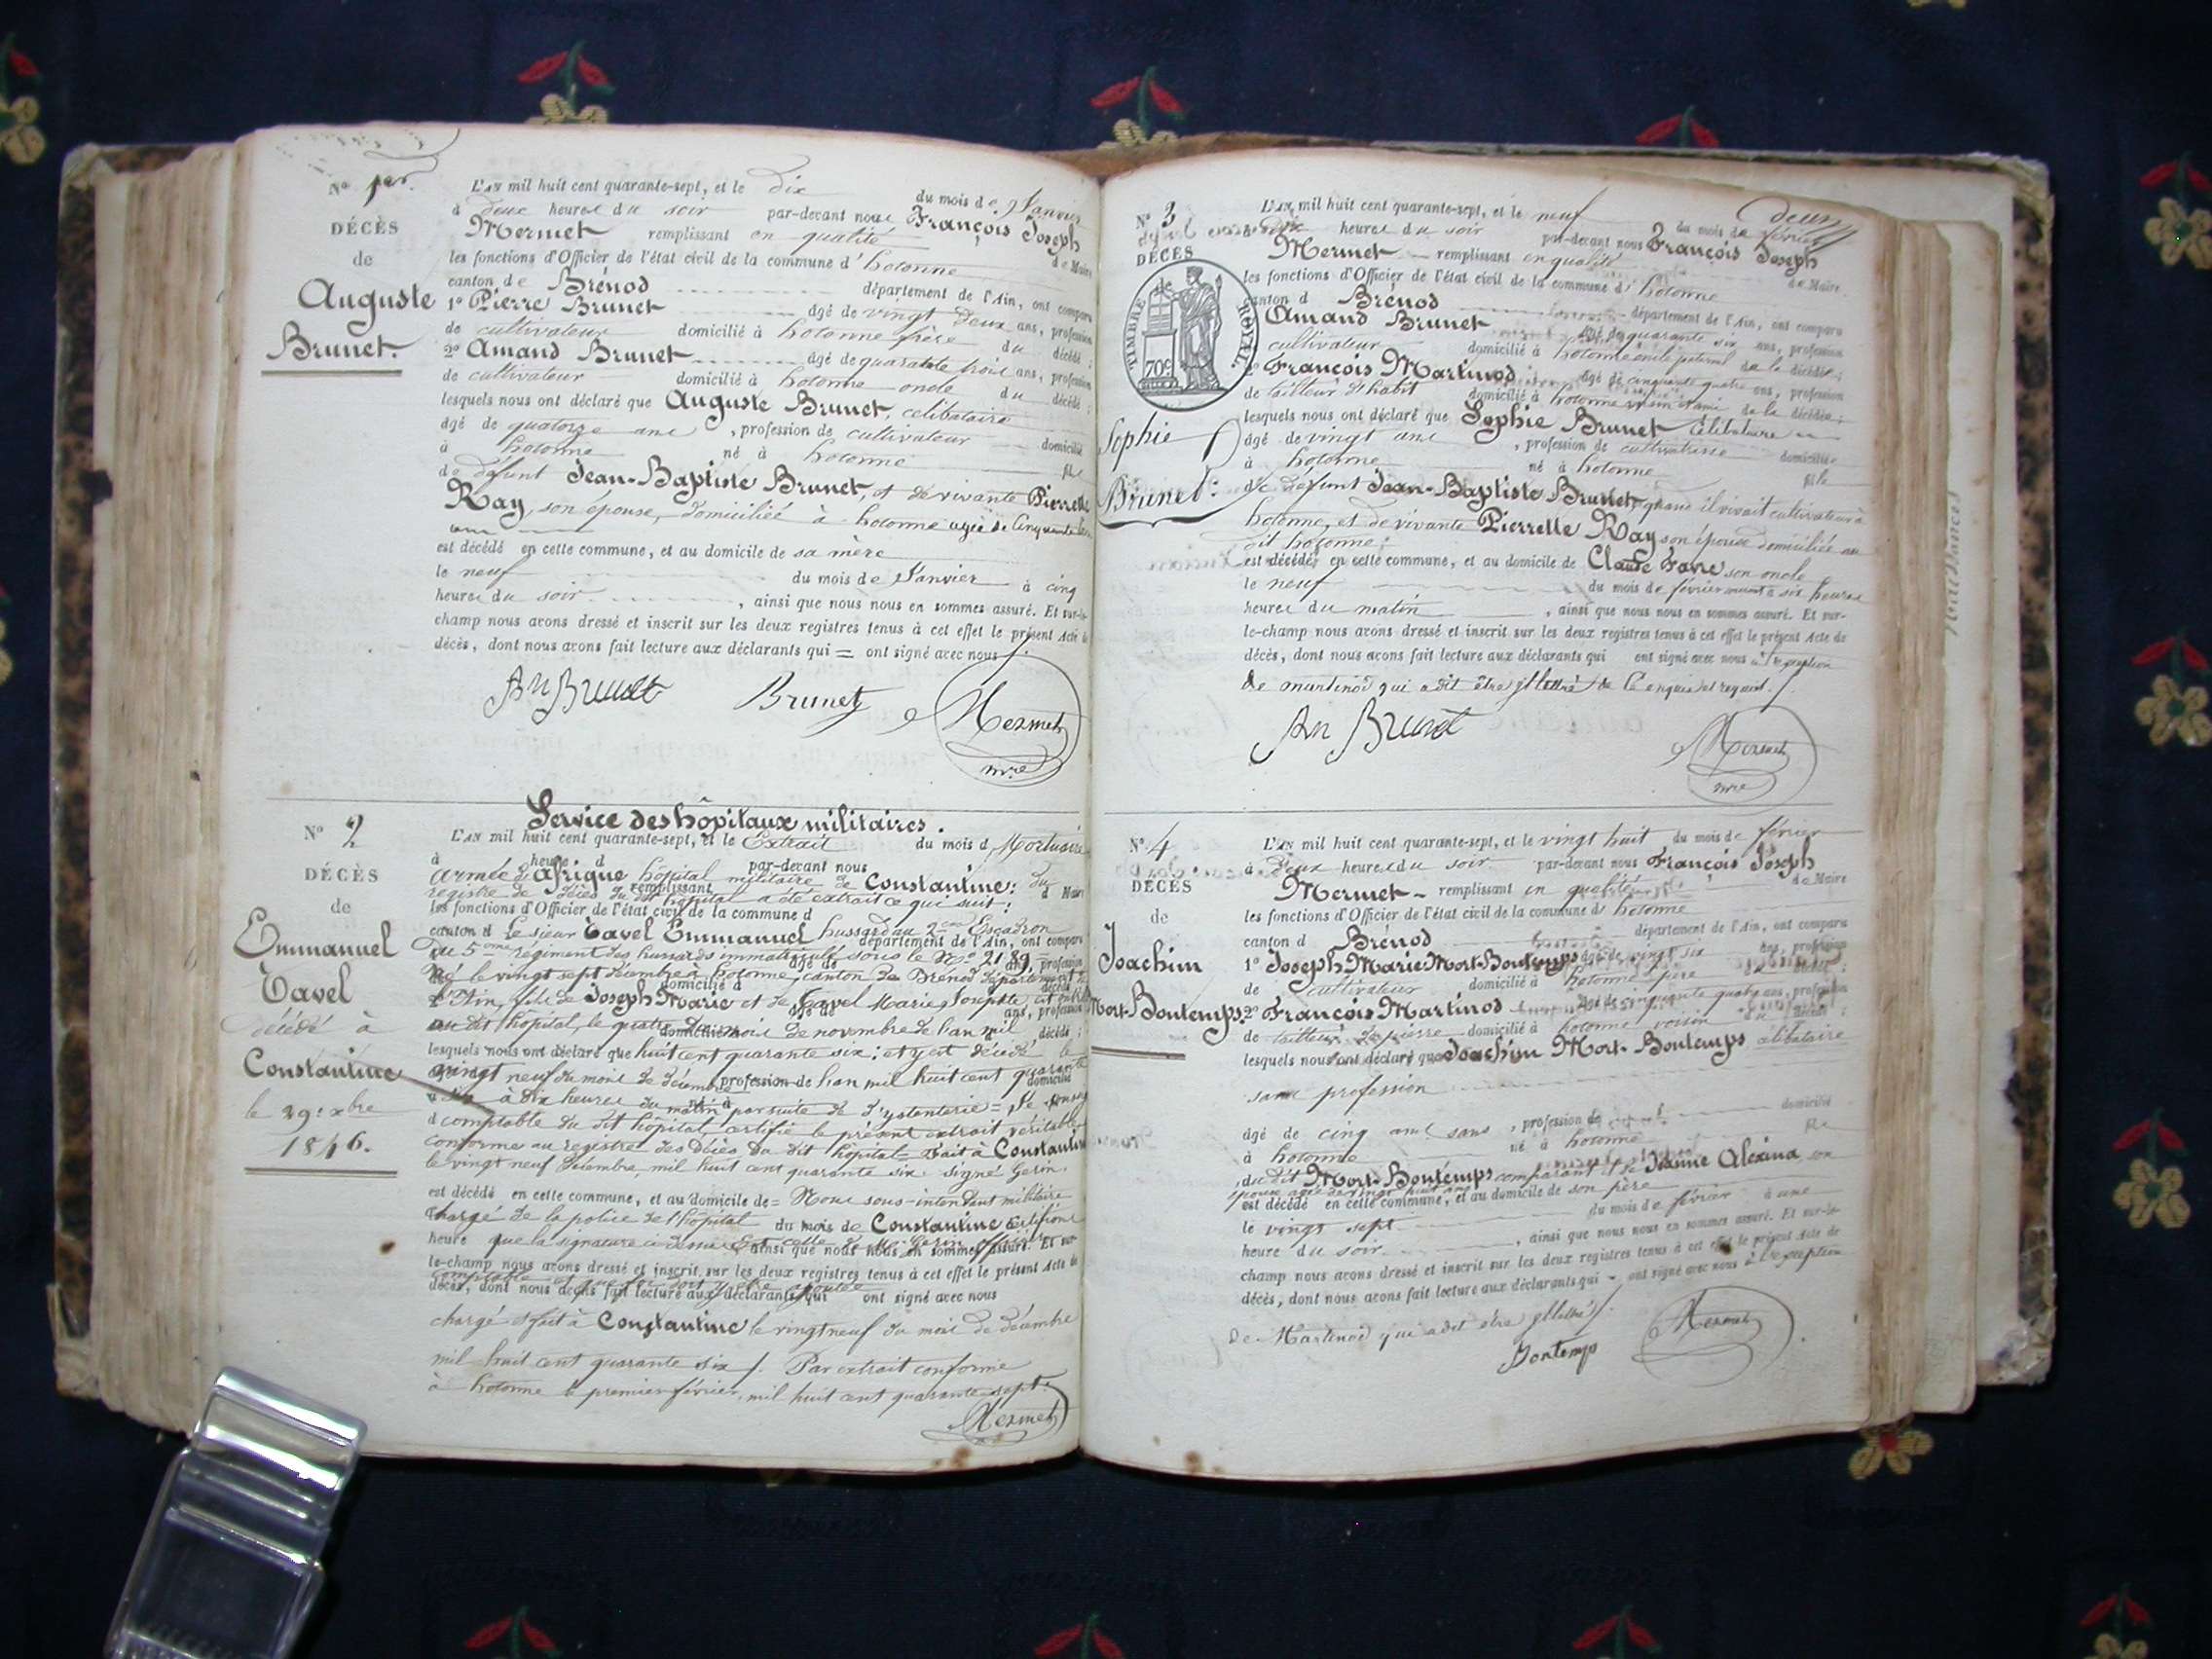 N° 1er.
DÉCÈS
de
Auguste
Brunet.
L'AN mil huit cent quarante-sept, et le dix du mois de Janvier
à deux heures du soir par-devant nous François Joseph
Mermet remplissant en qualité de Maire
les fonctions d'Officier de l'état civil de la commune d'hotonne
canton de Brénod département de l'Ain, ont comparu
1° Pierre Brunet âgé de vingt deux ans, profession
de cultivateur domicilié à hotonne frère du décédé;
2° Amand Brunet âgé de quarante trois ans, profession
de cultivateur domicilié à hotonne oncle du décédé;
lesquels nous ont déclaré que Auguste Brunet, celibataire
âgé de quatorze ans, profession de cultivateur domicilié
à hotonne né à hotonne fils
de défunt Jean-Baptiste Brunet, et de vivante Pierrette
Ray, son épouse, domiciliée à hotonne agée de Cinquante
ans
est décédé en cette commune, et au domicile de sa mère
le neuf du mois de Janvier à cinq
heures du soir, ainsi que nous nous en sommes assuré. Et sur-le-
champ nous avons dressé et inscrit sur les deux registres tenus à cet effet le présent Acte de
décès, dont nous avons fait lecture aux déclarants qui = ont signé avec nous
An Brunet Brunet Mermet
mre
N° 2
DÉCÈS
de
Emmanuel
Tavel
décédé à
Constantine
le 29 xbre
1846.
Service des hôpitaux militaires.
L'AN mil huit cent quarante-sept, et le Extrait du mois d Mortuaire
à heure d par-devant nous
armée d'Afrique hôpital militaire de Constantine: du
remplissant d Maire
registre de décès du dit hôpital a été extrait ce qui suit:
les fonctions d'Officier de l'état civil de la commune d
canton d Le sieur Tavel Emmanuel hussard au 2me Escadron
département de l'Ain, ont comparu
du 5eme régiment des hussards immatriculé sous le N° 2189
âgé de ans, profession
Né le vingt sept décembre à hotonne, canton de Brénod département de
domicilié à décédé
l'Ain, fils de Joseph Marie et de Tavel Marie Josephte, est entré
âgé de ans, profession
au dit hôpital, le quatre du mois de novembre de l'an mil
domicilié à décédé;
lesquels nous ont déclaré que huit cent quarante six; et y est décédé le
vingt neuf du mois de décembre profession de l'an mil huit cent quarante
domicilié
six à dix heures du matin par suite de dyssenterie = Je soussigné
comptable du dit hôpital, certifie le présent extrait véritable
conforme au registre des décès du dit hôpital Fait à Constantine
le vingt neuf décembre, mil huit cent quarante six. signé Gerin.
est décédé en cette commune, et au domicile de = Nous sous-intendant militaire
chargé de la police de l'hôpital du mois de Constantine certifions
heure que la signature ci dessus Est celle de Mr Gerin officier
ainsi que nous nous en sommes assuré. Et sur-
le-champ nous avons dressé et inscrit sur les deux registres tenus à cet effet le présent Acte de
comptable et que foi doit y être ajoutée
décès, dont nous avons fait lecture aux déclarants qui ont signé avec nous
chargé fait à Constantine le vingt neuf du mois de décembre
mil huit cent quarante six. Par extrait conforme
à hotonne le premier février, mil huit cent quarante sept.
Mermet
deux
N° 3
DÉCÈS
TIMBRE ROYAL
70c
Sophie
Brunet.
L'AN mil huit cent quarante-sept, et le neuf du mois de février
heures du soir par-devant nous François Joseph
Mermet remplissant en qualité de Maire
les fonctions d'Officier de l'état civil de la commune d'hotonne
canton d Brénod département de l'Ain, ont comparu
Amand Brunet âgé de quarante six ans, profession
cultivateur domicilié à hotonne oncle paternel de la décédée;
2° François Martinod âgé de cinquante quatre ans, profession
de tailleur d'habit domicilié à hotonne voisin et ami de la décédée;
lesquels nous ont déclaré que Sophie Brunet Célibataire
âgé de vingt ans, profession de cultivatrice domicilié
à hotonne né à hotonne fille
de défunt Jean-Baptiste Brunet, quand il vivait cultivateur à
hotonne, et de vivante Pierrette Ray son épouse domiciliée au
dit hotonne;
est décédée en cette commune, et au domicile de Claude Favre son oncle
le neuf du mois de février à six heures
heures du matin, ainsi que nous nous en sommes assuré. Et sur-
le-champ nous avons dressé et inscrit sur les deux registres tenus à cet effet le présent Acte de
décès, dont nous avons fait lecture aux déclarants qui ont signé avec nous à l'exception
de martinod qui a dit être illettré de ce enquis et requis.
An Brunet Mermet
mre
N° 4
DÉCÈS
de
Joachim
Mort-Bontemps.
L'AN mil huit cent quarante-sept, et le vingt huit du mois de février
à deux heures du soir par-devant nous François Joseph
Mermet - remplissant en qualité de Maire
les fonctions d'Officier de l'état civil de la commune d'hotonne
canton d Brénod département de l'Ain, ont comparu
1° Joseph Marie Mort-Bontemps âgé de vingt six ans, profession
de cultivateur domicilié à hotonne père du décédé;
2° François Martinod âgé de cinquante quatre ans, profession
de tailleur de pierre domicilié à hotonne voisin du décédé;
lesquels nous ont déclaré que Joachim Mort-Bontemps célibataire
sans profession
âgé de cinq ans sans, profession de domicilié
à hotonne né à hotonne fils
du dit Mort-Bontemps comparant et de Jeanne Alexina son
épouse agée de vingt huit ans
est décédé en cette commune, et au domicile de son père
le vingt sept du mois de février à une
heure du soir, ainsi que nous nous en sommes assuré. Et sur-le-
champ nous avons dressé et inscrit sur les deux registres tenus à cet effet le présent Acte de
décès, dont nous avons fait lecture aux déclarants qui - ont signé avec nous à l'exception
de Martinod qui a dit être illettré.
Bontemp Mermet